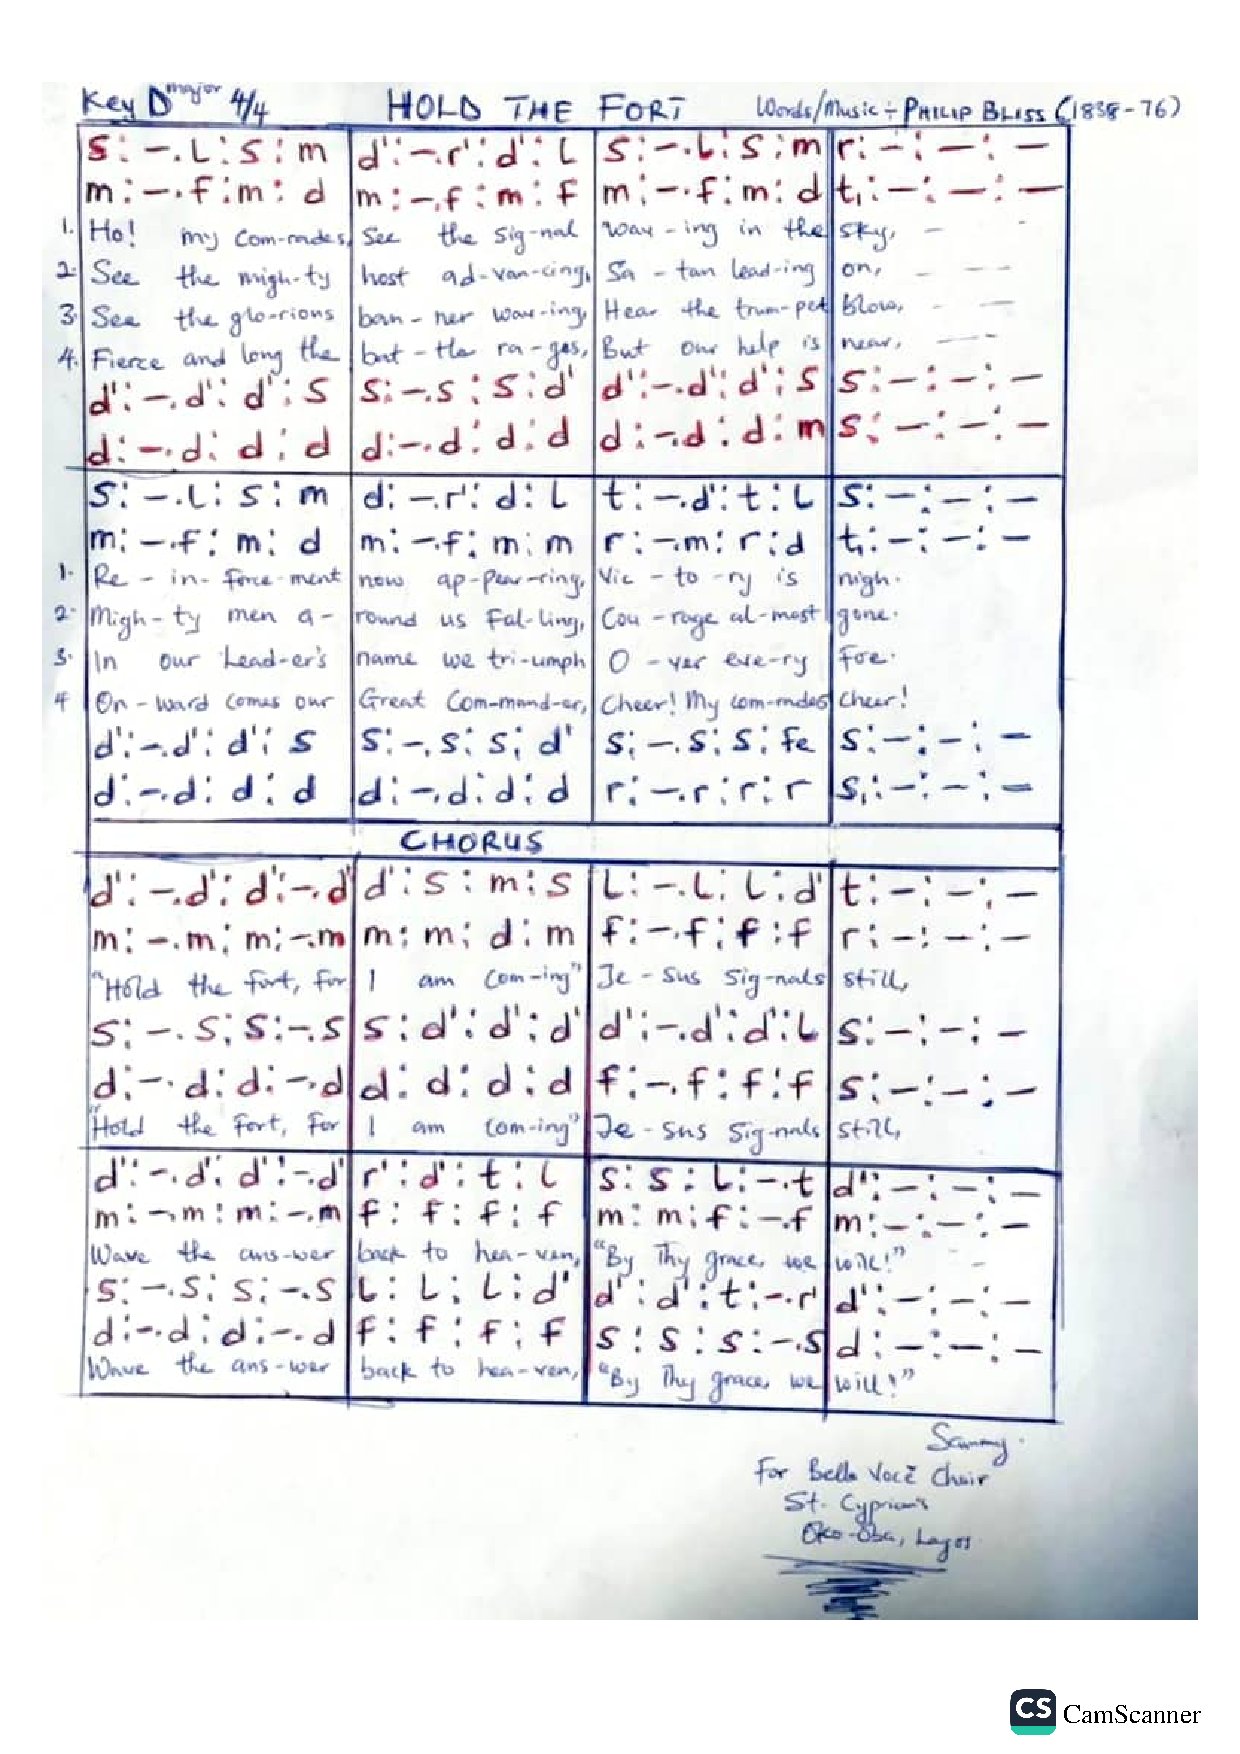 Key D major 4/4 HOLD THE FORT Words/Music ÷ PHILIP BLISS (1838-76)
s:-.l:s:m | d':-.r':d':l | s:-.l:s:m | r:-:-:-
m:-.f:m:d | m:-.f:m:f | m:-.f:m:d | t₁:-:-:-
1. Ho! my com-rades, | See the sig-nal | wav-ing in the | sky, - -
2. See the migh-ty | host ad-van-cing, | Sa-tan lead-ing | on, - - -
3. See the glo-rious | ban-ner wav-ing, | Hear the trum-pet | blow, - -
4. Fierce and long the | bat-tle ra-ges, | But our help is | near, - - -
d':-.d':d':s | s:-.s:s:d' | d':-.d':d':s | s:-:-:-
d:-.d:d:d | d:-.d:d:d | d:-.d:d:m | s:-:-:-
s:-.l:s:m | d:-.r':d:l | t:-.d':t:l | s:-:-:-
m:-.f:m:d | m:-.f:m:m | r:-.m:r:d | t₁:-:-:-
1. Re-in-force-ment | now ap-pear-ring, | Vic-to-ry is | nigh.
2. Migh-ty men a- | round us Fal-ling, | Cou-rage al-most | gone.
3. In our Lead-er's | name we tri-umph | O-ver eve-ry | Foe.
4 On-ward comes our | Great Com-mand-er, | Cheer! My com-rades | Cheer!
d':-.d':d':s | s:-.s:s:d' | s:-.s:s:fe | s:-:-:-
d:-.d:d:d | d:-.d:d:d | r:-.r:r:r | s₁:-:-:-
CHORUS
d':-.d':d':-.d' | d':s:m:s | l:-.l:l:d' | t:-:-:-
m:-.m:m:-.m | m:m:d:m | f:-.f:f:f | r:-:-:-
"Hold the fort, for | I am com-ing" | Je-sus Sig-nals | still,
s:-.s:s:-.s | s:d':d':d' | d':-.d':d':l | s:-:-:-
d:-.d:d:-.d | d:d:d:d | f:-.f:f:f | s:-:-:-
"Hold the fort, for | I am com-ing" | Je-sus Sig-nals | still,
d':-.d':d':-.d' | r':d':t:l | s:s:l:-.t | d':-:-:-
m:-.m:m:-.m | f:f:f:f | m:m:f:-.f | m:-:-:-
Wave the ans-wer | back to hea-ven, | "By Thy grace, we | will!" -
s:-.s:s:-.s | l:l:l:d' | d':d':t:-.r' | d':-:-:-
d:-.d:d:-.d | f:f:f:f | s:s:s:-.s | d:-:-:-
Wave the ans-wer | back to hea-ven, | "By Thy grace, we | will!"
Sammy.
For Bella Voce Choir
St. Cyprian's
Oko-Oba, Lagos
CS CamScanner